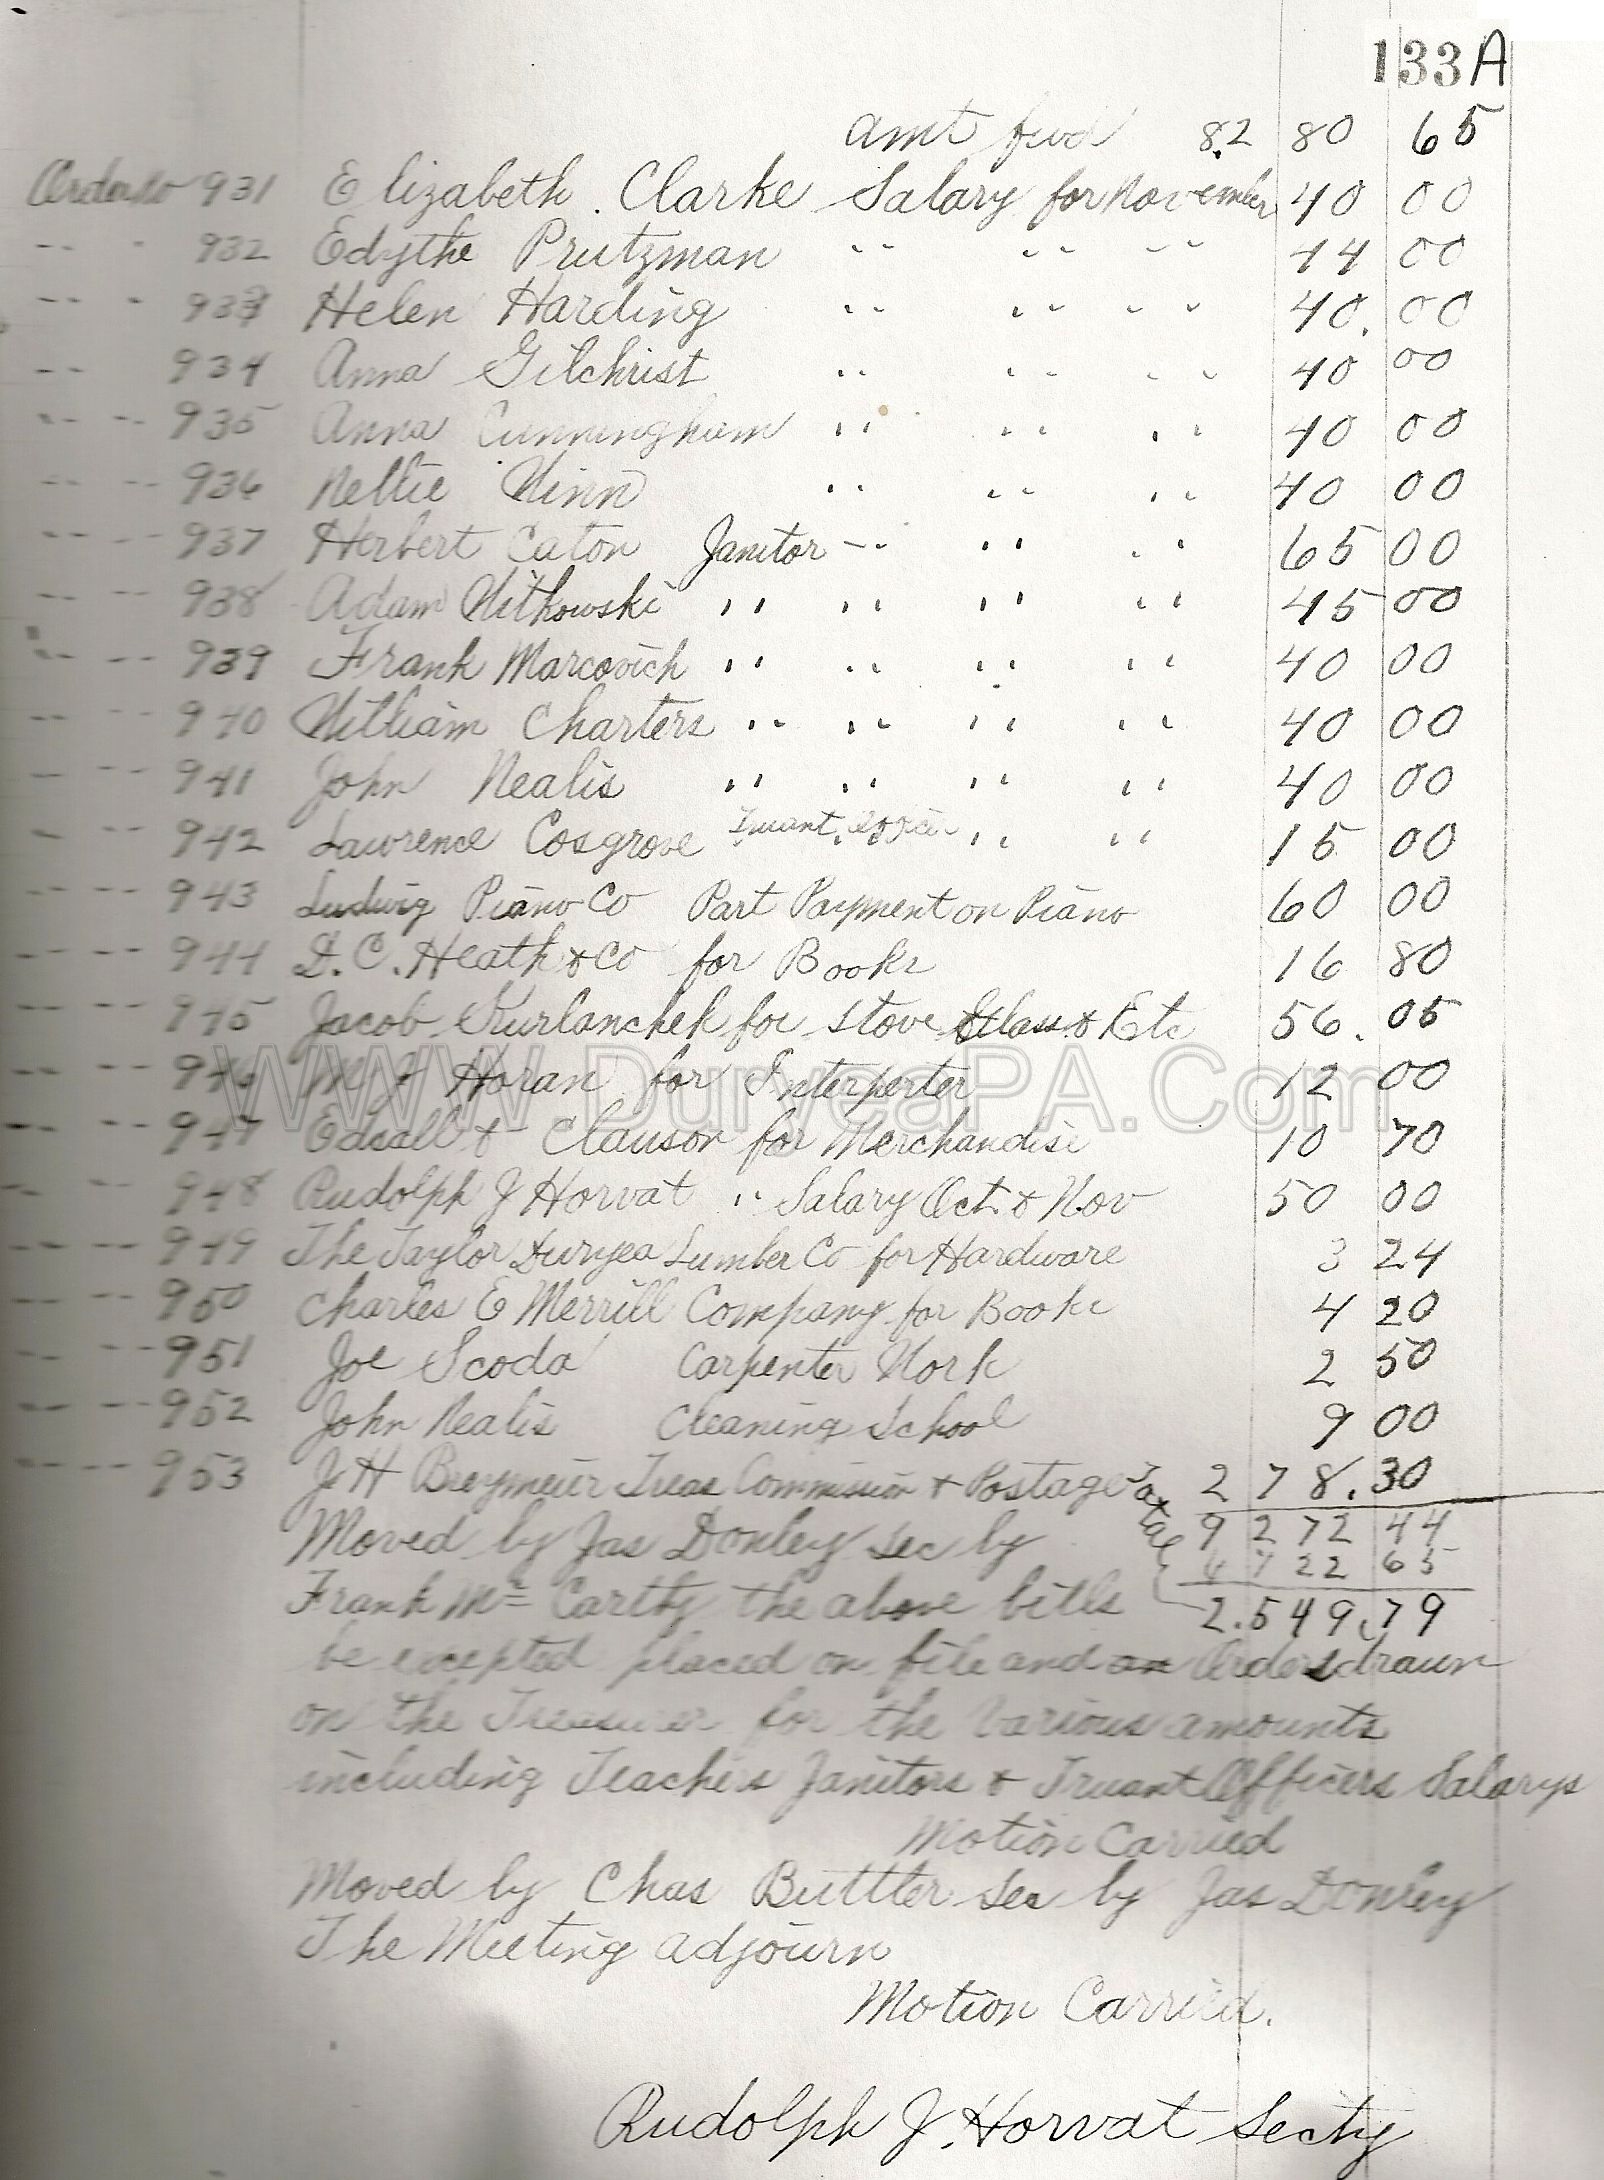 133A
amt fwd 8280 65
Order No 931 Elizabeth. Clarke Salary for November 40 00
" " " 932 Edythe Prutzman " " " 44 00
" " " 933 Helen Harding " " " " 40. 00
" " 934 Anna Gilchrist " " " " 40 00
" " " 935 Anna Cunningham " " " 40 00
" " " 936 Nellie Winn " " " 40 00
" " " 937 Herbert Eaton Janitor " " " 65 00
" " " 938 Adam Witkowski " " " " 45 00
" " " 939 Frank Marcovich " " " " 40 00
" " " 940 William Charters " " " " 40 00
" " " 941 John Nealis " " " " 40 00
" " " 942 Lawrence Cosgrove Truant Officer " " 15 00
" " " 943 Ludwig Piano Co Part Payment on Piano 60 00
" " " 944 D.C. Heath & Co for Books 16 80
" " " 945 Jacob Kurlanchek for Stove Glass & Etc 56. 05
" " " 946 M J Horan for Interperter 12 00
WWW.DuryeaPA.Com
" " " 947 Edsall & Clauson for Merchandise 10 70
" " 948 Rudolph J Horvat " Salary Oct. & Nov 50 00
" " " 949 The Taylor Duryea Lumber Co for Hardware 3 24
" " " 950 Charles E Merrill Company for Books 4 20
" " " 951 Joe Scoda Carpenter Work 2 50
" " " 952 John Nealis Cleaning School 9 00
" " " 953 J H Breymeier Treas Commission & Postage 278.30
Total
Moved by Jas Donley sec by 9272 44
4722 65
Frank Mc Carthy the above bills 2.549.79
be excepted placed on file and Orders drawn
on the Treasurer for the Various amounts
including Teachers Janitors & Truant Officers Salarys
Motion Carried
Moved by Chas Buttler sec by Jas Donley
The Meeting adjourn
Motion Carried.
Rudolph J. Horvat Secty